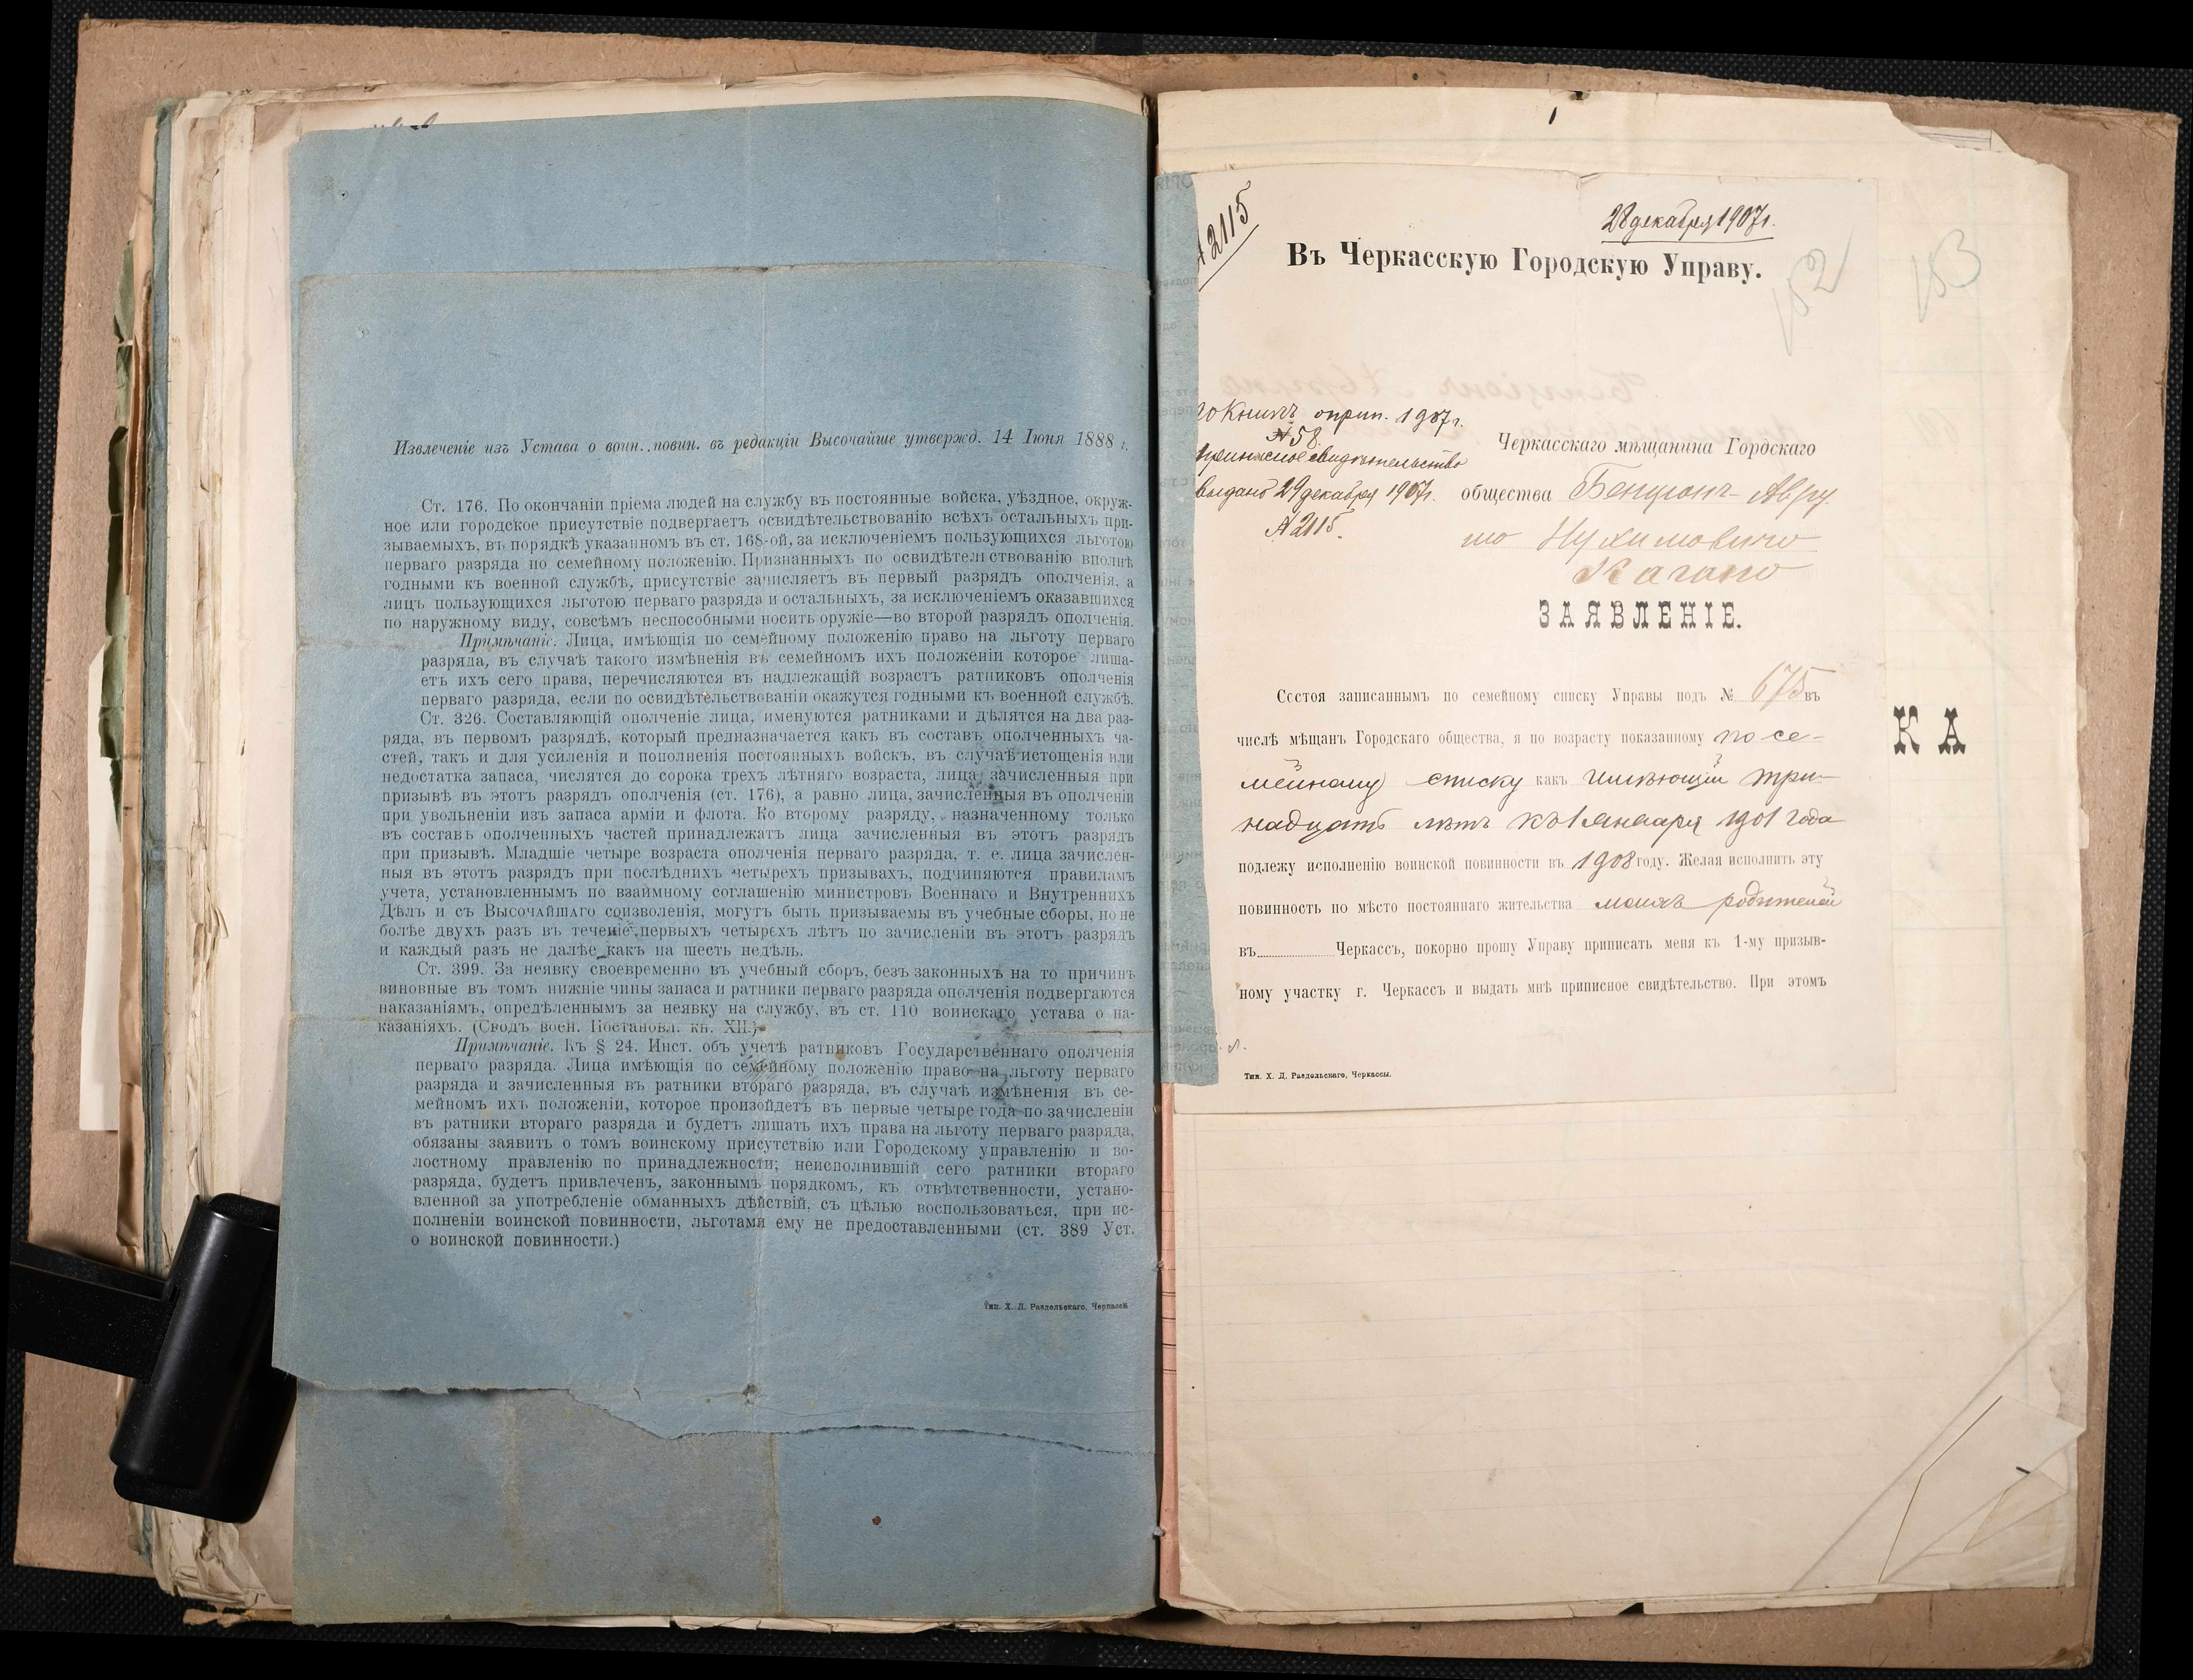 Извлеченіе изъ Устава о воин. повин. въ редакціи Высочайше утвержд. 14 Іюня 1888 г.
Ст. 176. По окончаніи пріема людей на службу въ постоянные войска, уѣздное, окруж-
ное или городское присутствіе подвергаетъ освидѣтельствованію всѣхъ остальныхъ при-
зываемыхъ, въ порядкѣ указанномъ въ ст. 168-ой, за исключеніемъ пользующихся льготою
перваго разряда по семейному положенію. Признанныхъ по освидѣтельствованію вполнѣ
годными къ военной службѣ, присутствіе зачисляетъ въ первый разрядъ ополченія, а
лицъ пользующихся льготою перваго разряда и остальныхъ, за исключеніемъ оказавшихся
по наружному виду, совсѣмъ неспособными носить оружіе—во второй разрядъ ополченія.
Примѣчаніе. Лица, имѣющія по семейному положенію право на льготу перваго
разряда, въ случаѣ такого измѣненія въ семейномъ ихъ положеніи которое лиша-
етъ ихъ сего права, перечисляются въ надлежащій возрастъ ратниковъ ополченія
перваго разряда, если по освидѣтельствованіи окажутся годными къ военной службѣ.
Ст. 326. Составляющій ополченіе лица, именуются ратниками и дѣлятся на два раз-
ряда, въ первомъ разрядѣ, который предназначается какъ въ составъ ополченныхъ ча-
стей, такъ и для усиленія и пополненія постоянныхъ войскъ, въ случаѣ истощенія или
недостатка запаса, числятся до сорока трехъ лѣтняго возраста, лица зачисленныя при
призывѣ въ этотъ разрядъ ополченія (ст. 176), а равно лица, зачисленныя въ ополченіи
при увольненіи изъ запаса арміи и флота. Ко второму разряду, назначенному только
въ составъ ополченныхъ частей принадлежатъ лица зачисленныя въ этотъ разрядъ
при призывѣ. Младшіе четыре возраста ополченія перваго разряда, т. е. лица зачислен-
ныя въ этотъ разрядъ при послѣднихъ четырехъ призывахъ, подчиняются правиламъ
учета, установленнымъ по взаимному соглашенію министровъ Военнаго и Внутреннихъ
Дѣлъ и съ Высочайшаго соизволенія, могутъ быть призываемы въ учебные сборы, но не
болѣе двухъ разъ въ теченіе первыхъ четырехъ лѣтъ по зачисленіи въ этотъ разрядъ
и каждый разъ не далѣе какъ на шесть недѣль.
Ст. 399. За неявку своевременно въ учебный сборъ, безъ законныхъ на то причинъ
виновные въ томъ нижніе чины запаса и ратники перваго разряда ополченія подвергаются
наказаніямъ, опредѣленнымъ за неявку на службу, въ ст. 110 воинскаго устава о на-
казаніяхъ. (Сводъ воен. Постановл. кн. XII.)
Примѣчаніе. Къ § 24. Инст. объ учетѣ ратниковъ Государственнаго ополченія
перваго разряда. Лица имѣющія по семейному положенію право на льготу перваго
разряда и зачисленныя въ ратники втораго разряда, въ случаѣ измѣненія въ се-
мейномъ ихъ положеніи, которое произойдетъ въ первые четыре года по зачисленіи
въ ратники втораго разряда и будетъ лишать ихъ права на льготу перваго разряда,
обязаны заявить о томъ воинскому присутствію или Городскому управленію и во-
лостному правленію по принадлежности; неисполнившій сего ратники втораго
разряда, будетъ привлеченъ, законнымъ порядкомъ, къ отвѣтственности, устано-
вленной за употребленіе обманныхъ дѣйствій, съ цѣлью воспользоваться, при ис-
полненіи воинской повинности, льготами ему не предоставленными (ст. 389 Уст.
о воинской повинности.)
Тип. Х. Д. Раздольскаго, Черкассы
№ 2115
28 декабря 1907 г.
Въ Черкасскую Городскую Управу.
152
153
по книгѣ оприп. 1907 г.
№ 58.
Приписное свидѣтельство
выдано 29 декабря 1907 г.
№ 2115.
Черкасскаго мѣщанина Гордскаго
общества Бенціонъ-Авру
мо Нухимовичо
Кагано
ЗАЯВЛЕНІЕ.
Состоя записаннымъ по семейному списку Управы подъ № 675 въ
числѣ мѣщанъ Городскаго общества, я по возрасту показанному по се-
мейному списку какъ имѣющій три-
надцать лѣтъ къ 1 января 1901 года
подлежу исполненію воинской повинности въ 1908 году. Желая исполнить эту
повинность по мѣсто постояннаго жительства моихъ родителей
въ Черкассъ, покорно прошу Управу приписать меня къ 1-му призыв-
ному участку г. Черкассъ и выдать мнѣ приписное свидѣтельство. При этомъ
Тип. Х. Д. Раздольскаго, Черкассы.
КА